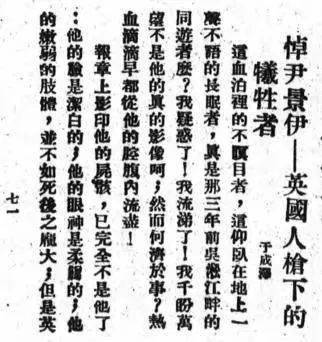 悼尹景伊—英國人槍下的
犧牲者
于成澤
這血泊裡的不瞑目者,這仰臥在地上一
聲不語的長眠者,眞是那三年前吳淞江畔的
同遊者麼?我疑惑了!我流涕了!我千盼萬
望不是他的眞的影像呵;然而何濟於事?熱
血滴滴早都從他的腔腹內流盡!
報章上影印他的屍骸,已完全不是他了
:他的臉是潔白的;他的眼神是柔膩的;他
的嫩弱的肢體,並不如死後之龐大;但是英
七一